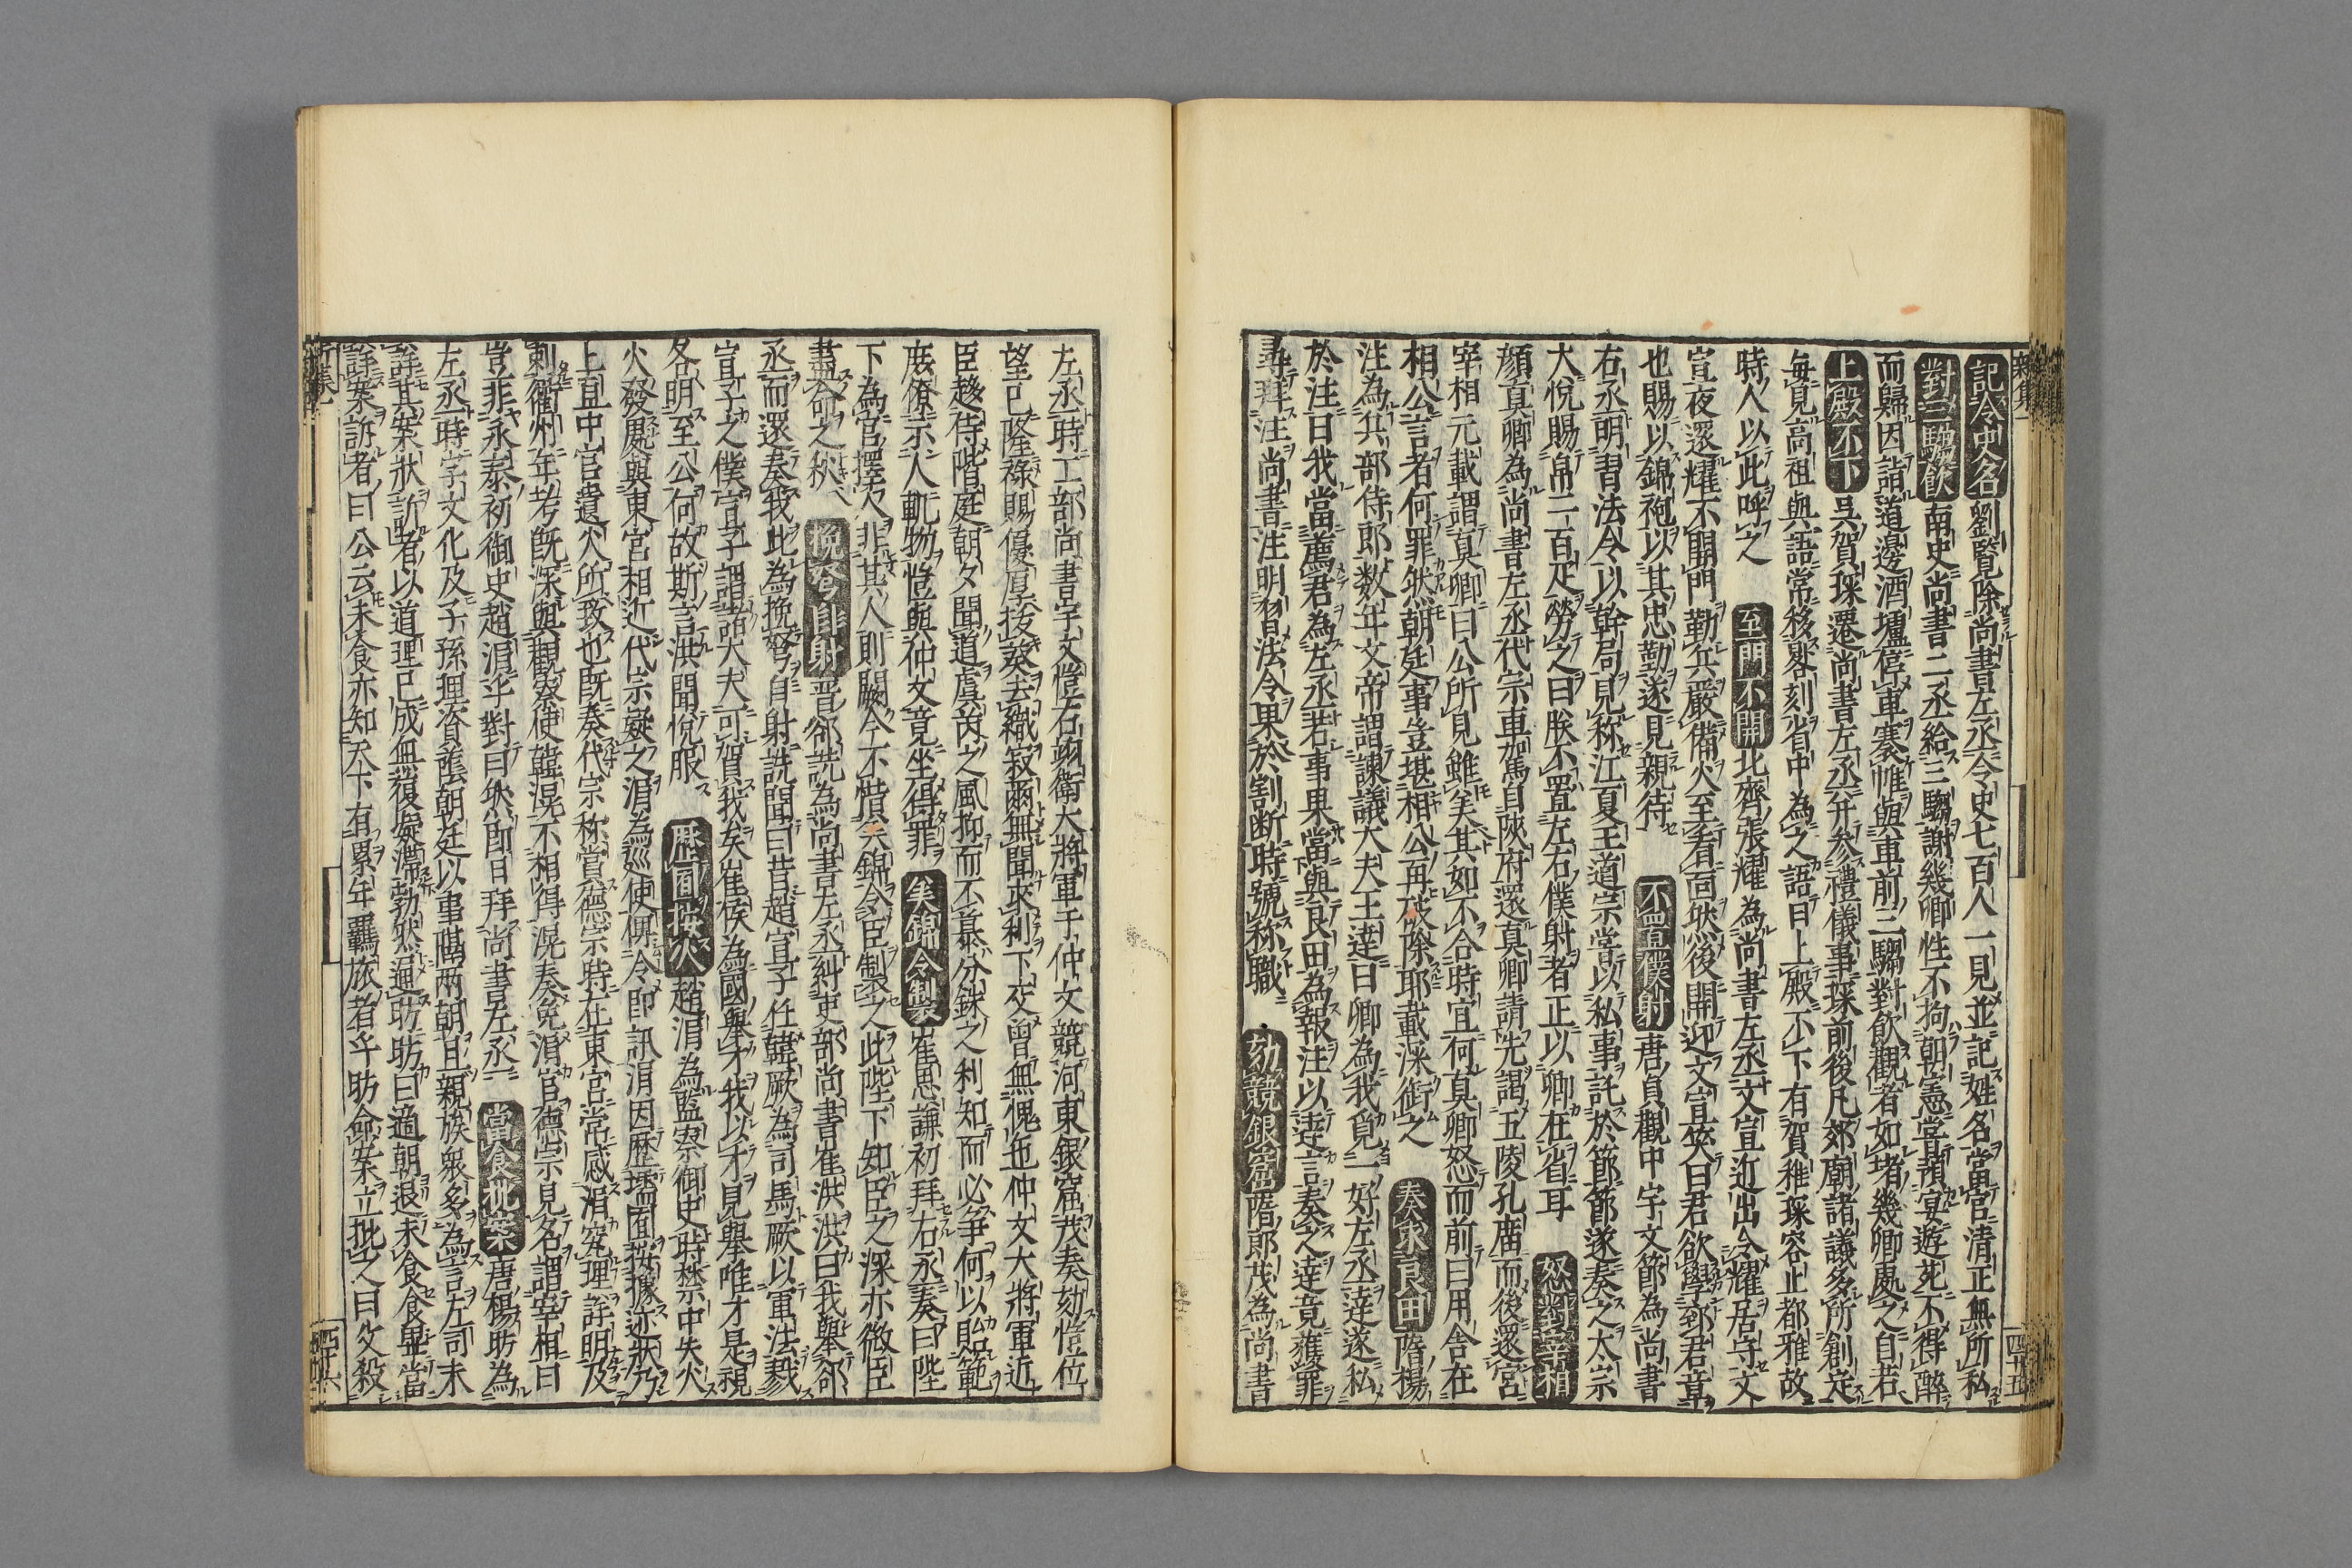 記令史名劉覧除尚書左丞令史七百人一見並記姓名當官清正無所私
對三騶飲南史尚書二丞給三騶謝幾卿性不拘朝憲嘗預宴遊苑不得醉
而歸因詣道邊酒壚停車褰帷與車前三騶對飲觀者如堵幾卿處之自若
上殿不下吳賀琛遷尚書左丞并参禮儀事琛前後凡郊廟諸議多所創定
毎見高祖與語常移晷刻省中為之語曰上殿不下有賀稚琛容止都雅故
時人以此呼之 至門不開北齊張耀為尚書左丞文宣近出令耀居守文
宣夜還耀不開門勒兵嚴備火至看面然後開迎文宣笑曰君欲學郅君章
也賜以錦袍以其忠勤遂見親待 不置僕射唐貞觀中宇文節為尚書
右丞明習法令以幹局見称江夏王道宗嘗以私事託於節節遂奏之太宗
大悅賜帛二百疋勞之曰朕不置左右僕射者正以卿在省耳 怒對宰相
顔真卿為尚書左丞代宗車駕自陝府還真卿請先謁五陵孔廟而後還宮
宰相元載謂真卿曰公所見雖美其如不合時宜何真卿怒而前曰用舍在
相公言者何罪然朝廷事豈堪相公再破除耶載深銜之 奏求良田隋楊
汪為兵部侍郎数年文帝謂諫議大夫王達曰卿為我覓一好左丞達遂私
於汪曰我當薦君為左丞若事果當與良田為報汪以達言奏之達竟獲罪
尋拜汪尚書汪明習法令果於割断時號称職 劾競銀窟隋郎茂為尚書
左丞時工部尚書宇文愷右翊衛大將軍于仲文競河東銀窟茂奏劾愷位
望已隆祿賜優厚抜葵去織寂爾無聞求利下交曽無愧色仲文大將軍近
臣趍侍階庭朝夕聞道虞芮之風抑而不慕分銖之利知而必争何以貽範
庶僚示人軌物愷與仲文竟坐得罪 美錦令製崔思謙初拜右丞奏曰陛
下為官擇人非其人則闕今不惜美錦令臣製之此陛下知臣之深亦微臣
盡命之秋 挽弩自射晋郤詵為尚書左丞糾吏部尚書崔洪洪曰我舉郤
丞而還奏我此為挽弩自射詵聞曰昔趙宣子任韓厥為司馬厥以軍法戮
宣子之僕宣子謂諸大夫可賀我矣崔侯為國舉才我以才見舉唯才是視
各明至公何故斯言洪聞悅服 歴面按火趙涓為監察御史時禁中失火
火發處與東宮相近代宗疑之涓為巡使俾令即訊涓因歴壖面按據迹狀乃
上直中官遺火所致也既奏代宗称賞德宗時在東宮常感涓究理詳明及
刺衢州年考既深與觀察使韓滉不相得滉奏免涓官德宗見名謂宰相曰
豈非永泰初御史趙涓乎對曰然即日拜尚書左丞 當食批案唐楊昉為
左丞時宇文化及子孫理資蔭朝廷以事隔兩朝且親族衆多為言左司未
詳其案狀訴者以道理已成無復疑滞勃然逼昉昉曰適朝退未食食畢當
詳案訴者曰公云未食亦知天下有累年羈旅者乎昉命案立批之曰父殺
四十五